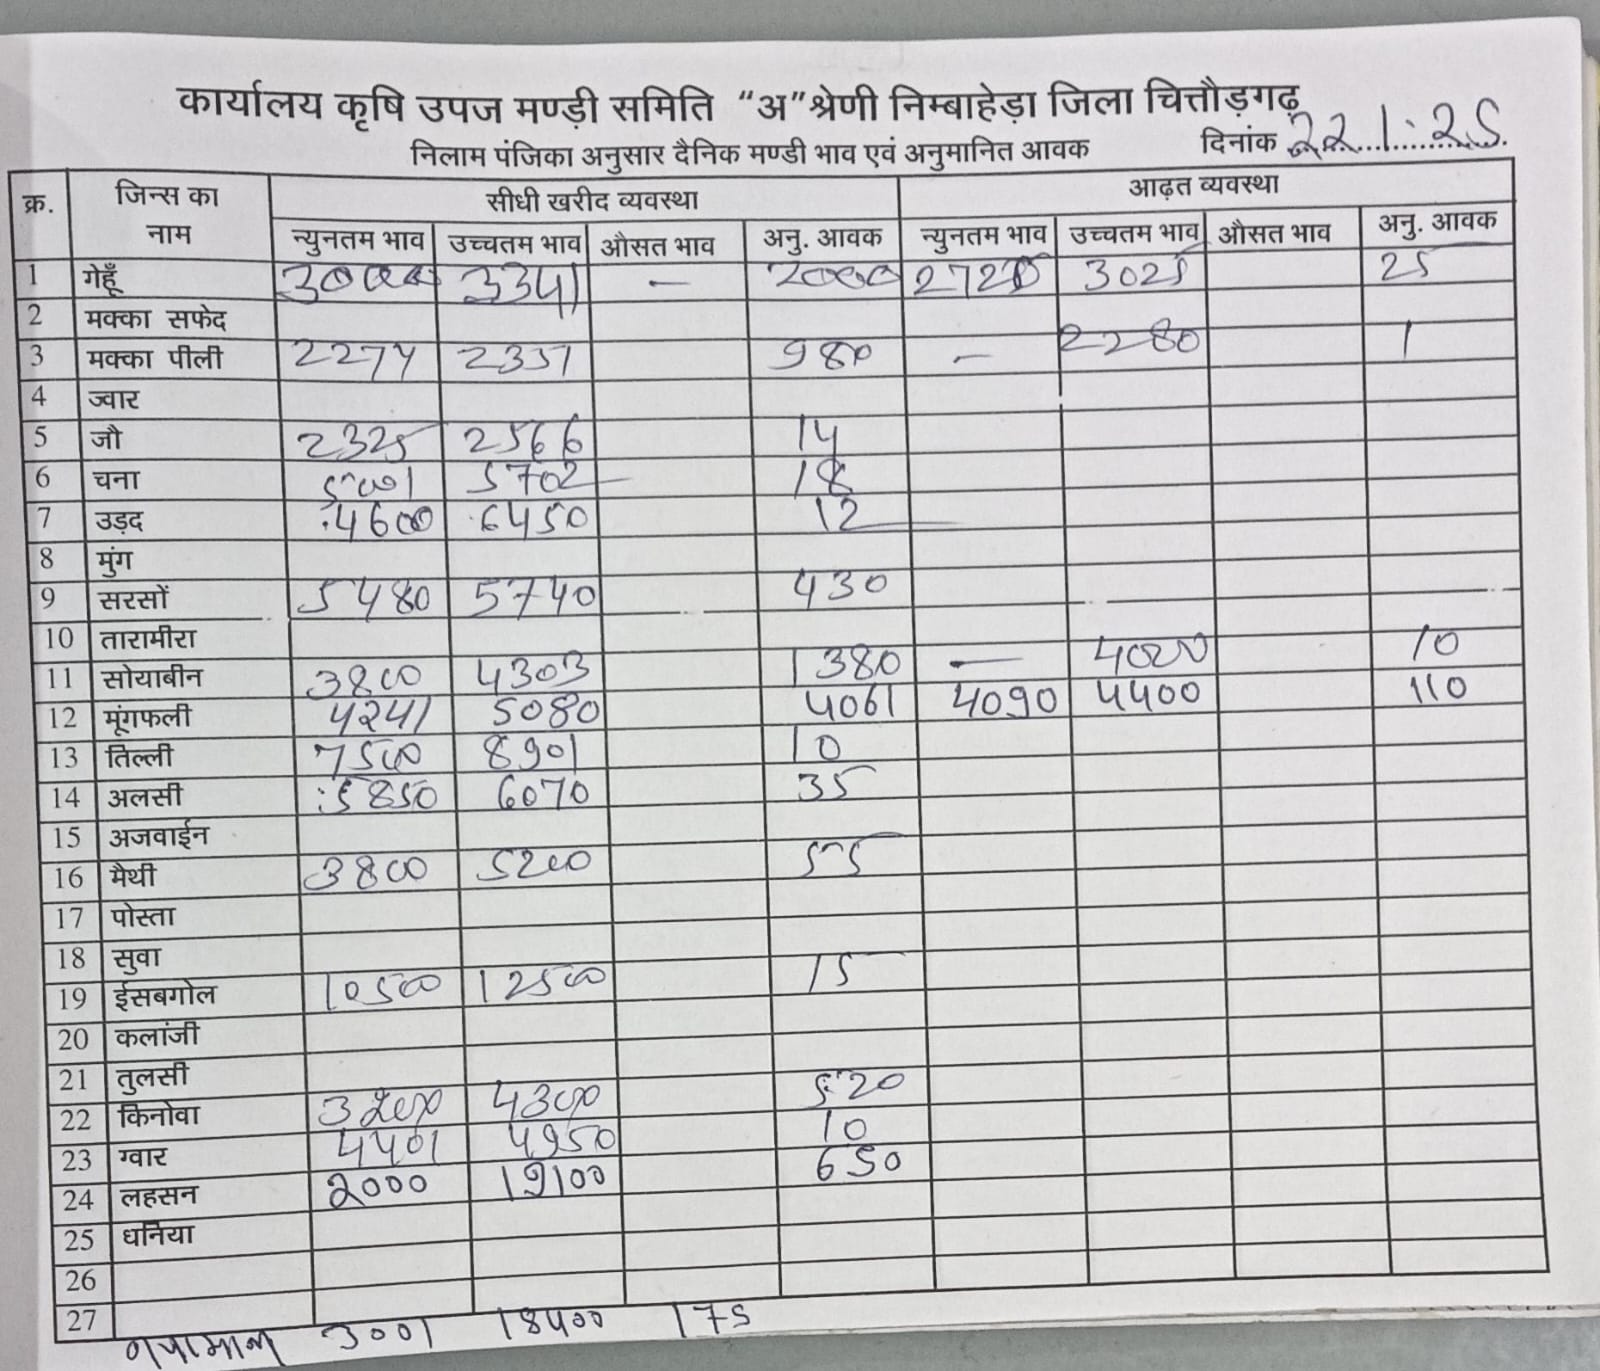 कार्यालय कृषि उपज मण्डी समिति "अ" श्रेणी निम्बाहेड़ा जिला चित्तौड़गढ़
निलाम पंजिका अनुसार दैनिक मण्डी भाव एवं अनुमानित आवक दिनांक 22.1.25
क्र. जिन्स का नाम सीधी खरीद व्यवस्था आढ़त व्यवस्था
न्युनतम भाव उच्चतम भाव औसत भाव अनु. आवक न्युनतम भाव उच्चतम भाव औसत भाव अनु. आवक
1 गेहूँ 3000 3341 — 2000 2725 3025 25
2 मक्का सफेद
3 मक्का पीली 2274 2351 980 — 2280 1
4 ज्वार
5 जौ 2325 2566 14
6 चना 5001 5702 18
7 उड़द 4600 6450 12
8 मुंग
9 सरसों 5480 5740 430
10 तारामीरा
11 सोयाबीन 3800 4303 1380 — 4020 10
12 मूंगफली 4241 5080 4061 4090 4400 110
13 तिल्ली 7500 8901 10
14 अलसी 5850 6070 35
15 अजवाईन
16 मैथी 3800 5200 55
17 पोस्ता
18 सुवा
19 ईसबगोल 10500 12500 15
20 कलांजी
21 तुलसी
22 किनोवा 3200 4300 520
23 ग्वार 4401 4950 10
24 लहसन 2000 19100 650
25 धनिया
26
27
3001 18400 175